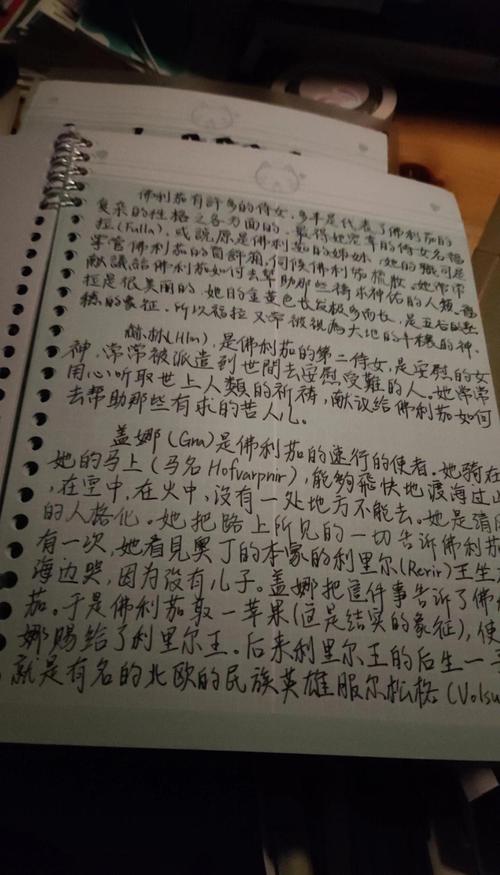 佛利茄有許多的侍女,多半是代表了佛利茄的
复杂的性格之各方面的。最得她宠幸的侍女名福
拉(Fulla),或説原是佛利茄的姊妹,她的職司是
掌管佛利茄的首飾箱,伺候佛利茄梳妝。她常常
献議給佛利茄如何去幫助那些待求神佑的人類。福
拉是很美丽的,她的金黄色长发极多而长,是五谷的熟
穗的象征,所以福拉又常被視為大地的千穗的神.
赫林(Hlm),是佛利茄的第二侍女,是安慰的女
神,常常被派造到世間去安慰受難的人。她常常
用心听取世上人類的祈祷,献议给佛利茄如何
去帮助那些有求的苦人儿。
盖娜(Gna)是佛利茄的迷行的使者。她骑在
她的马上(马名Hofvarpnir),能夠飛快地渡海过山
,在空中,在火中,没有一处地方不能去。她是清
的人格化。她把路上所见的一切告诉佛利茄
有一次,她看見奥丁的本家的利里尔(Rerir)王坐
海边哭,因为没有儿子。盖娜把這件事告诉了佛
茄。于是佛利茄取一苹果(这是结实的象征),使
娜赐给了利里尔王。后来利里尔王的后生一
就是有名的北欧的民族英雄服尔松格(Volsu